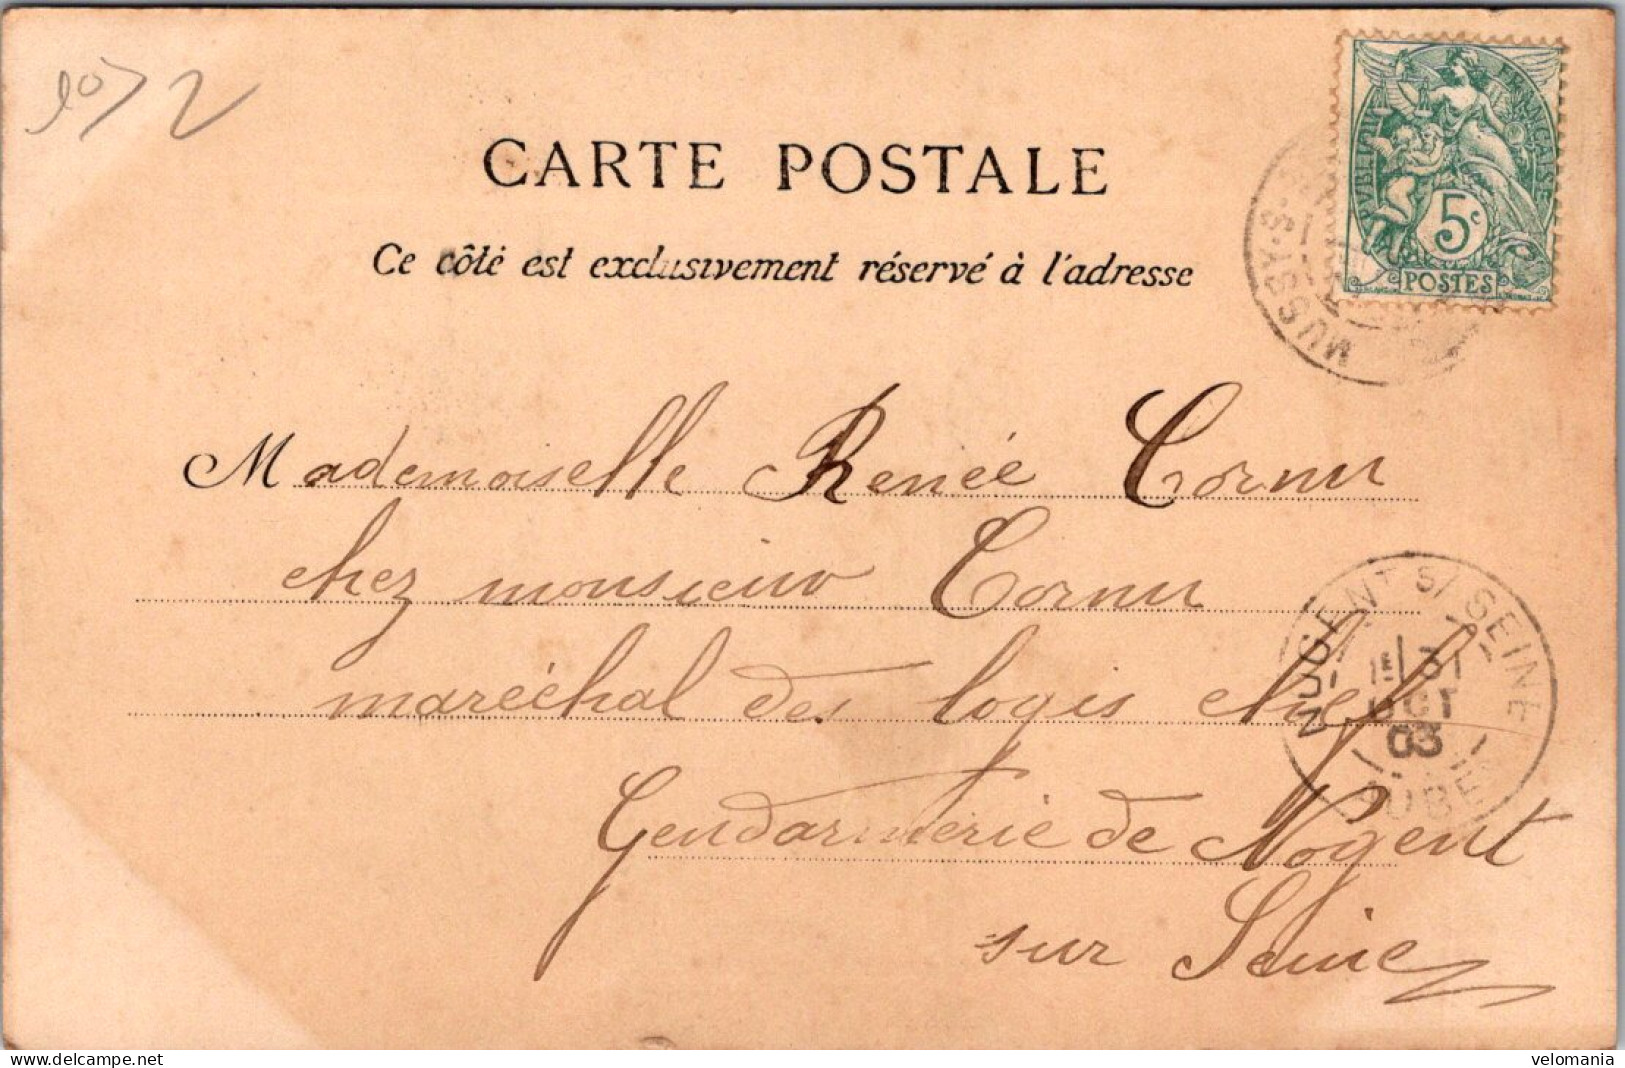 CARTE POSTALE
Ce côté est exclusivement réservé à l'adresse
RÉPUBLIQUE FRANÇAISE
5c
POSTES
MUSSY-S-S
Mademoiselle Renée Cornu
chez monsieur Cornu
maréchal des logis chef
Gendarmerie de Nogent
sur Seine
NOGENT S/ SEINE
1E/31
OCT
03
AUBE
www.delcampe.net
velomania